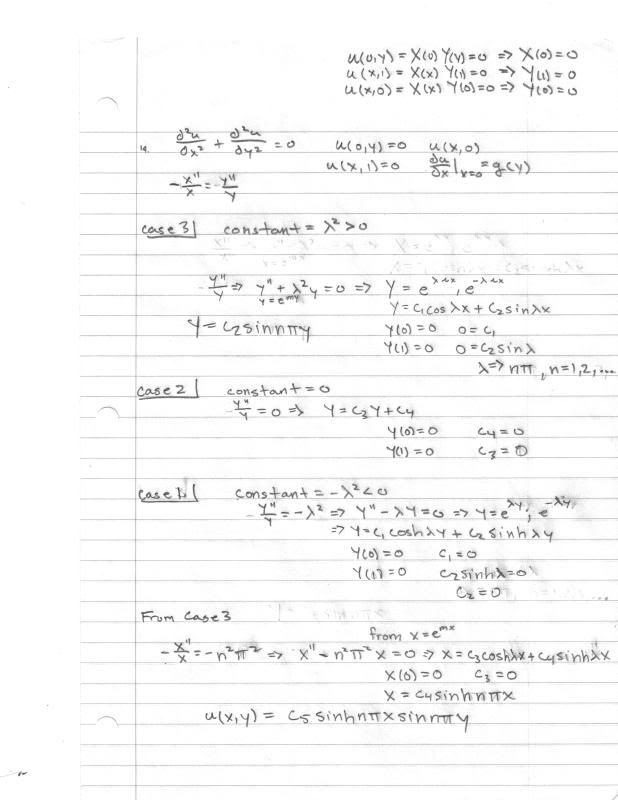 u(0,y) = X(0) Y(y) = 0 => X(0) = 0
u(x,1) = X(x) Y(1) = 0 => Y(1) = 0
u(x,0) = X(x) Y(0) = 0 => Y(0) = 0
19. ∂²u/∂x² + ∂²u/∂y² = 0 u(0,y) = 0 u(x,0)
u(x,1) = 0 ∂u/∂x|x=0 = g(y)
-X''/X = Y''/Y
case 3 constant = λ² > 0
-Y''/Y => Y'' + λ²y = 0 => Y = e^λix, e^-λix
y = e^my
Y = c₁cosλx + c₂sinλx
Y = c₂sin nπy Y(0) = 0 0 = c₁
Y(1) = 0 0 = c₂sinλ
λ => nπ, n = 1,2,...
case 2 constant = 0
-Y''/Y = 0 => Y = c₃Y + c₄
Y(0) = 0 c₄ = 0
Y(1) = 0 c₃ = 0
case 1 constant = -λ² < 0
-Y''/Y = -λ² => Y'' - λY = 0 => Y = e^λy, e^-λy
=> Y = c₁coshλy + c₂sinhλy
Y(0) = 0 c₁ = 0
Y(1) = 0 c₂sinhλ = 0
c₂ = 0
From Case 3
from x = e^mx
-X''/X = -n²π² => X'' - n²π²X = 0 => X = c₃coshλx + c₄sinhλx
X(0) = 0 c₃ = 0
X = c₄sinh nπx
u(x,y) = c₅ sinh nπx sin nπy